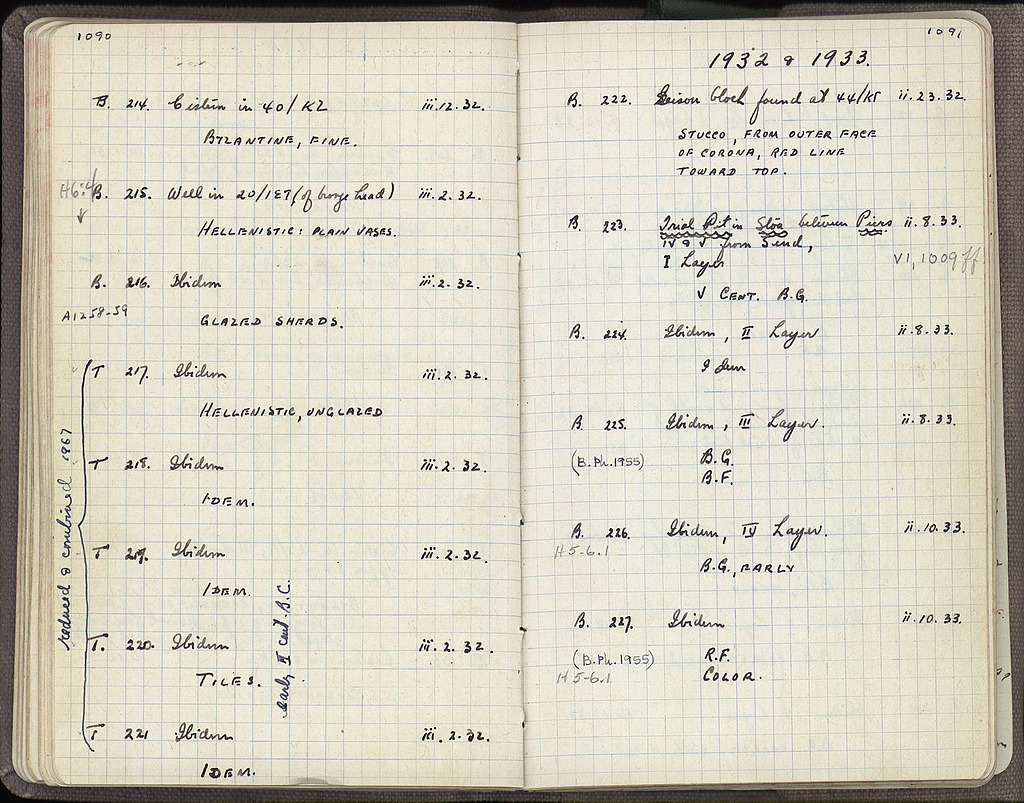 1090
B. 214. Cistern in 40/KZ iii.12.32.
BYZANTINE, FINE.
H6:4 B. 215. Well in 20/ (of bronze head) iii.2.32.
HELLENISTIC: PLAIN VASES.
B. 216. Ibidem iii.2.32.
A1258-59
GLAZED SHERDS.
T 217. Ibidem iii.2.32.
HELLENISTIC, UNGLAZED
T 218. Ibidem iii.2.32.
IDEM.
T 219. Ibidem iii.2.32.
IDEM.
T. 220. Ibidem iii.2.32.
TILES.
T 221 Ibidem iii.2.32.
IDEM.
reduced & combined 1967
early II cent. B.C.
1091
1932 & 1933.
B. 222. Geison block found at 44/ ii.23.32.
STUCCO, FROM OUTER FACE
OF CORONA, RED LINE
TOWARD TOP.
B. 223. Trial Pit in Stoa between Piers ii.8.33.
IV & V from S end,
I Layer VI, 1009 ff
V CENT. B.G.
B. 224. Ibidem, II Layer ii.8.33.
Idem
B. 225. Ibidem, III Layer. ii.8.33.
(B.Ph.1955) B.G.
B.F.
B. 226. Ibidem, IV Layer. ii.10.33.
H5-6.1
B.G., EARLY
B. 227. Ibidem ii.10.33.
(B.Ph.1955) R.F.
H5-6.1 COLOR.